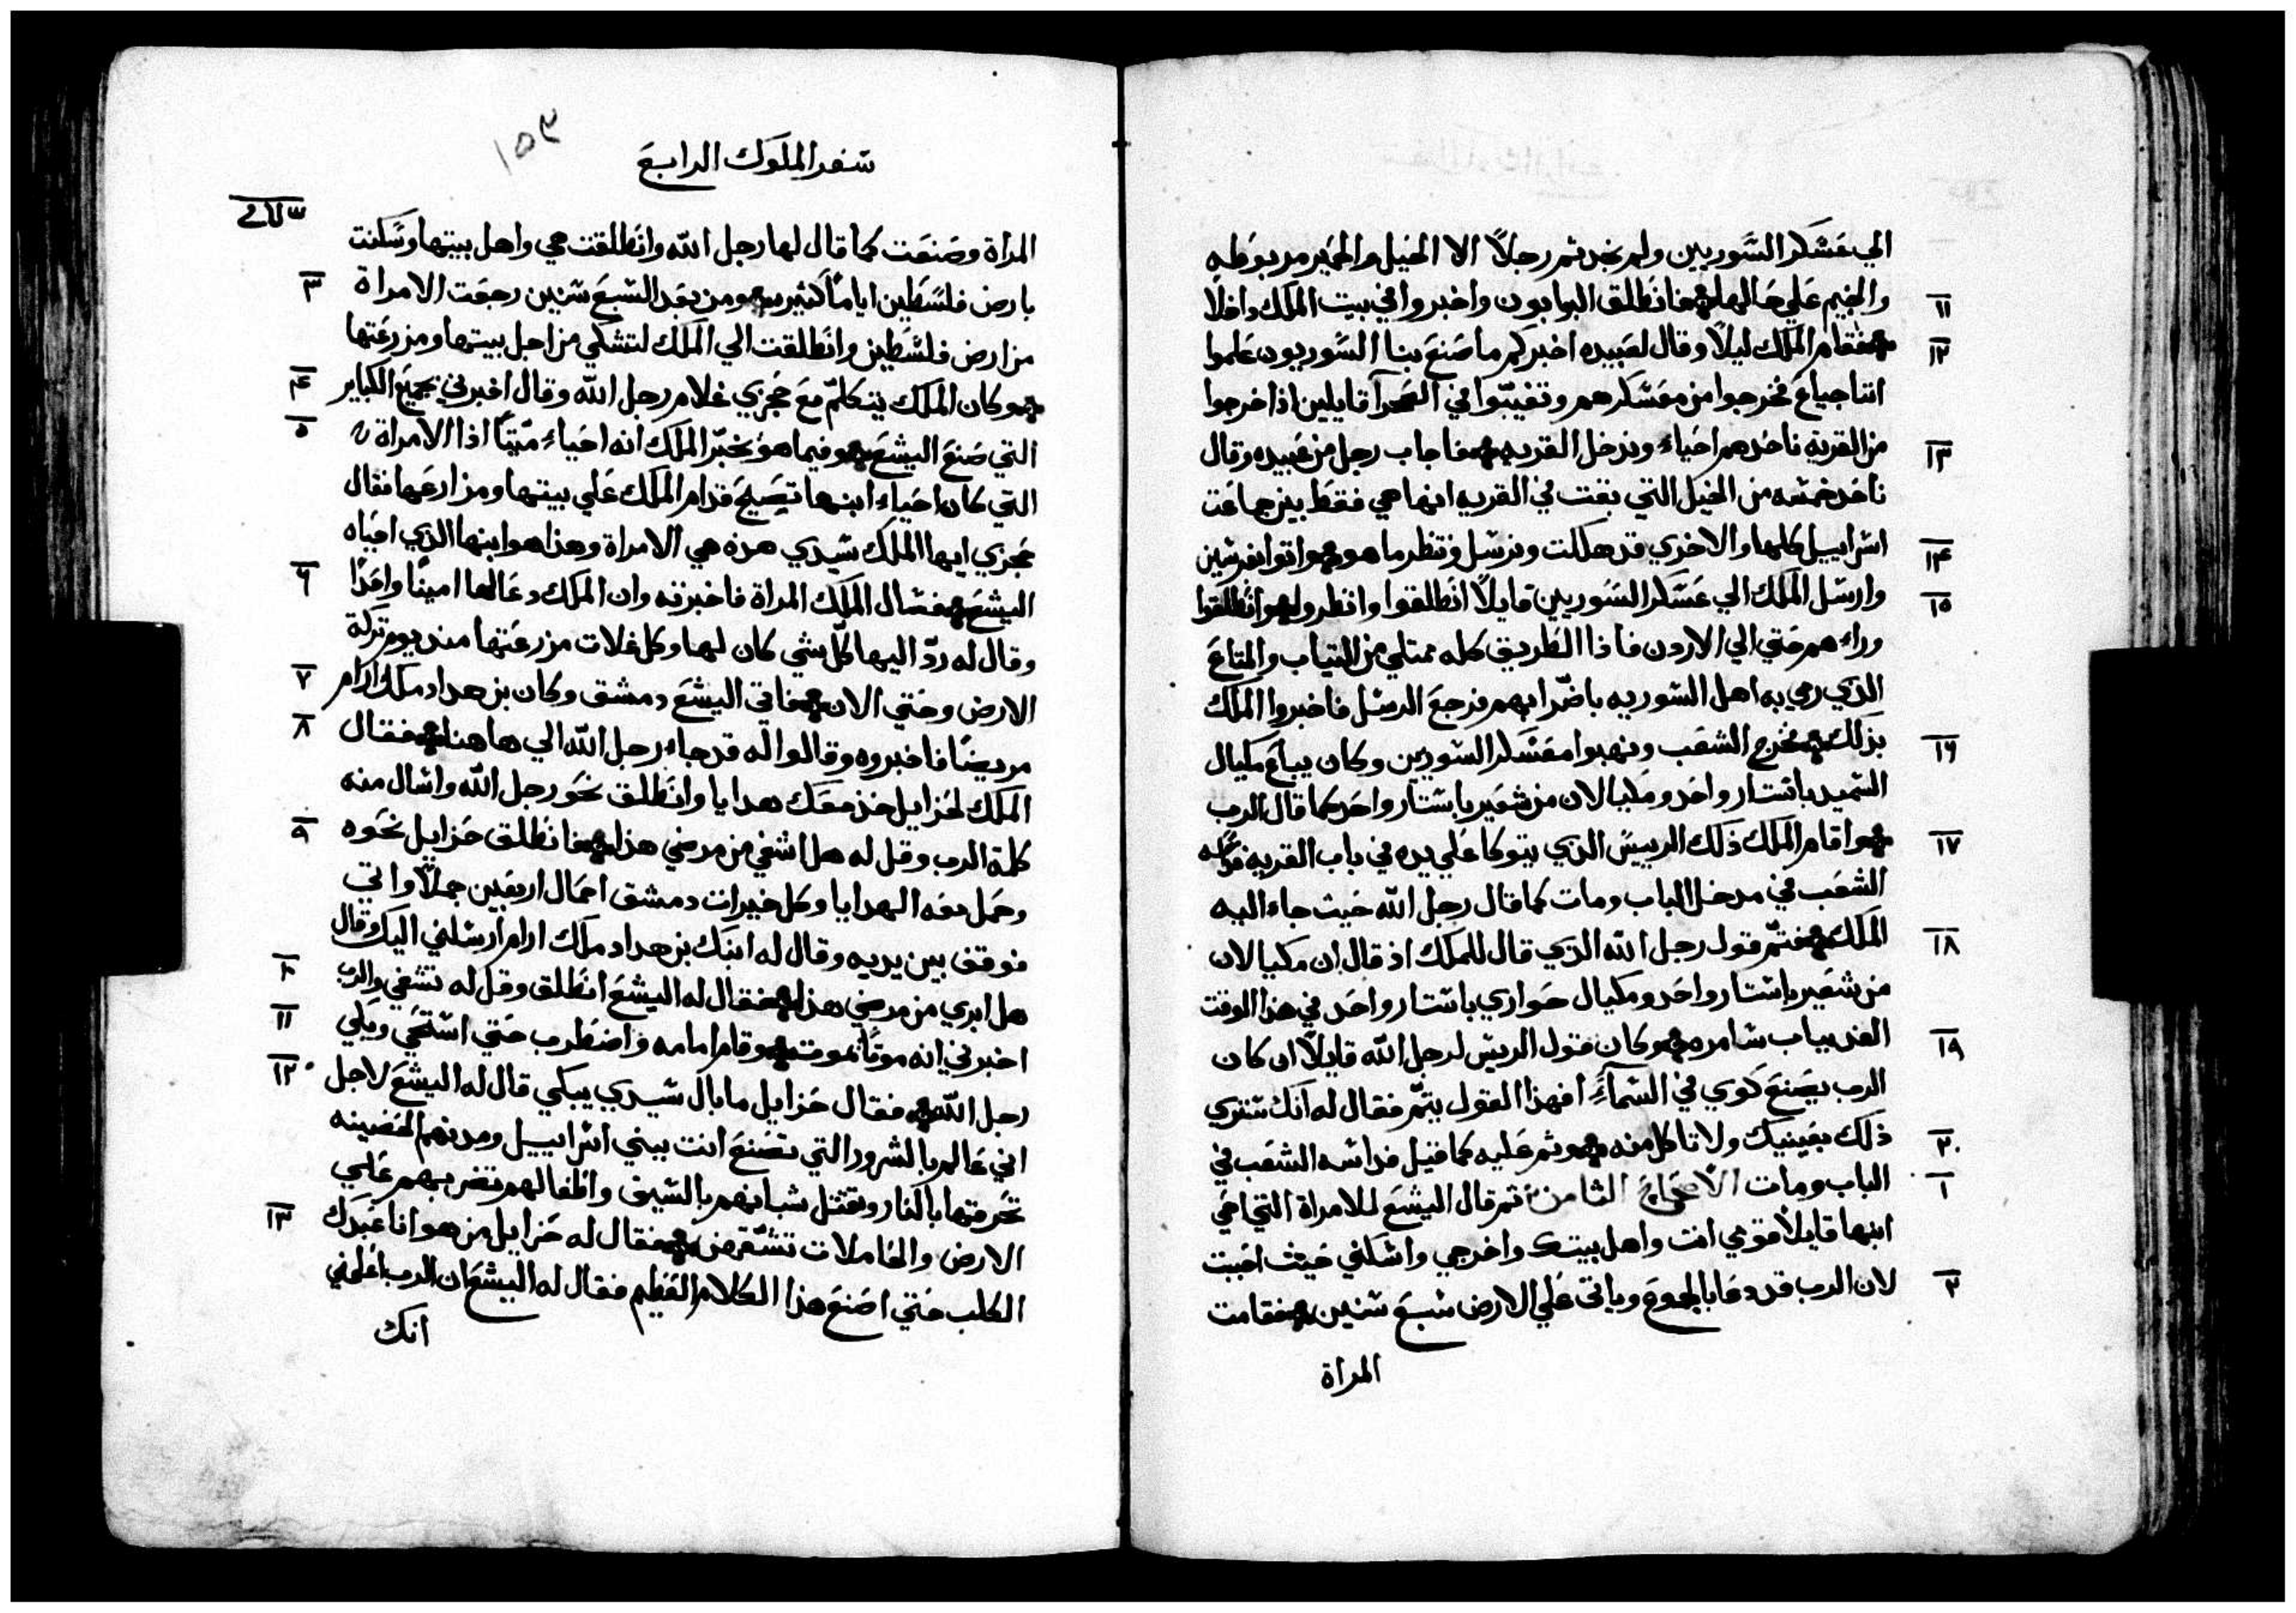 الي عسكر السوريين ولم نجد ثم رجلاً الا الخيل والحمير مربوطه
١١ والخيم علي حالها فانطلق البوابون واخبروا في بيت الملك داخلاً
١٢ فقام الملك ليلاً وقال لعبيده اخبركم ما صنع بنا السوريون علموا
اننا جياع فخرجوا من معسكرهم وتغيبوا في الصحرآ قايلين اذا خرجوا
١٣ من القريه ناخذهم احياء وندخل القريه فاجاب رجل من عبيده وقال
ناخذ خمسه من الخيل التي بقت في القريه انها هي فقط بين جماعت
١٤ اسراييل كلها والاخري قد هلكت ونرسل وننظر ما هو واتوا بفرسين
١٥ وارسل الملك الي عسكر السوريين قايلاً انطلقوا وانظروا وانطلقوا
وراءهم حتي الي الاردن فاذا الطريق كله ممتلي من الثياب والمتاع
الذي رمي به اهل السوريه باضرابهم فرجع الرسل فاخبروا الملك
١٦ بذلك فخرج الشعب ونهبوا معسكر السوريين وكان يباع مكيال
السميد باستار واحد ومكيالان من شعير باستار واحد كما قال الرب
١٧ واقام الملك ذلك الرييس الذي يتوكا علي يده في باب القريه
الشعب في مدخل الباب ومات كما قال رجل الله حيث جاء اليه
١٨ الملك فتم قول رجل الله الذي قال للملك اذ قال ان مكيالان
من شعير باستار واحد ومكيال حواري باستار واحد في هذا الوقت
١٩ الغد بباب شامره وكان قول الريس لرجل الله قايلاً ان كان
الرب يصنع كوي في السمآء افهذا القول يتم فقال له انك ستري
٢٠ ذلك بعينيك ولا تاكل منه وتم عليه كما قيل فداسه الشعب في
١ الباب ومات الاصحاح الثامن ثم قال اليشع للامراة التي احي
ابنها قايلاً قومي انت واهل بيتك واخرجي واسكني حيث احببت
٢ لان الرب قد دعا بالجوع وياتي علي الارض سبع سنين فقامت
المراة
١٥٣
سفر الملوك الرابع
المراة وصنعت كما قال لها رجل الله وانطلقت هي واهل بيتها وسكنت
٣ بارض فلسطين اياماً كثيره ومن بعد السبع سنين رجعت الامراة
من ارض فلسطين وانطلقت الي الملك لتشكي من اجل بيتها ومزرعتها
٤ وكان الملك يتكلم مع جحزي غلام رجل الله وقال اخبرني بجميع الكباير
٥ التي صنع اليشع وفيما هو يخبر الملك انه احياء ميتاً اذا الامراة
التي كان احياء ابنها تصيح قدام الملك علي بيتها ومزارعها فقال
جحزي ايها الملك سيدي هذه هي الامراة وهذا هو ابنها الذي احياه
٦ اليشع فسال الملك المراة فاخبرته وان الملك دعا لها اميناً واحداً
وقال له ردّ اليها كلّ شي كان لها وكل غلات مزرعتها منذ يوم تركة
٧ الارض وحتي الان فاتي اليشع دمشق وكان بن هداد ملك ارام
٨ مريضاً فاخبروه وقالوا له قد جاء رجل الله الي هاهنا فقال
الملك لحزاييل خذ معك هدايا وانطلق نحو رجل الله واسال منه
٩ كلمة الرب وقل له هل اشفي من مرضي هذا فانطلق حزاييل نحوه
وحمل معه الهدايا وكل خيرات دمشق احمال اربعين جملاً واتي
فوقف بين يديه وقال له ابنك بن هداد ملك ارام ارسلني اليك وقال
١٠ هل ابري من مرضي هذا فقال له اليشع انطلق وقل له تشفي والرب
١١ اخبرني انه موتاً يموت وقام امامه واضطرب حتي استحي وبكي
١٢ رجل الله فقال حزاييل ما بال سيدي يبكي قال له اليشع لاجل
اني عالم بالشرور التي تصنع انت ببني اسراييل ومدنهم الحصينه
تحرقها بالنار وتقتل شبانهم بالسيف واطفالهم تضرب بهم علي
١٣ الارض والحاملات تشقهن فقال له حزاييل من هو انا عبدك
الكلب حتي اصنع هذا الكلام العظيم فقال له اليشع ان الرب اعلمني
انك